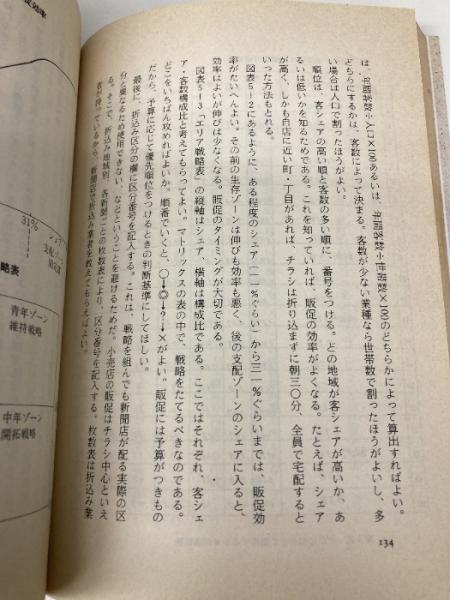 は、年間客数÷人口×100あるいは、年間客数÷世帯数×100のどちらかによって算出すればよい。
どちらにするかは、客数によって決まる。客数が少ない業種なら世帯数で割ったほうがよいし、多
い場合は人口で割ったほうがよい。
順位は、客シェアの高い順と客数の多い順に、番号をつける。どの地域が客シェアが高いか、あ
るいは低いかを知るためである。これを知っていれば、販促の効率がよくなる。たとえば、シェア
が高く、しかも自店に近い町・丁目があれば、チラシは折り込まずに朝三〇分、全員で宅配すると
いった方法もとれる。
図表5-2にあるように、ある程度のシェア(一一%ぐらい)から三一%ぐらいまでは、販促効
率がたいへんよい。その前の生存ゾーンは伸びも効率も悪く、後の支配ゾーンのシェアに入ると、
効率はよいが伸びは少なくなる。販促のタイミングが大切である。
図表5-3「エリア戦略表」の縦軸はシェア、横軸は構成比である。ここではそれぞれ、客シェ
ア・客数構成比と考えてもらってよい。マトリックスの表の中で、戦略をたてるべきなのである。
どこをいちばん攻めればよいか。順番でいくと、○→◎→?→×がよい。販促には予算がつきもの
だから、予算に応じて優先順位をつけるときの判断基準にしてほしい。
最後に、折込み区分の欄に区分番号を記入する。これは、戦略を組んでも新聞店が配る実際の区
分と異なるため使用できない、などということを避けるためだ。小売店の販促はチラシ中心といえ
る。そこで、折込み地域別、各新聞ごとの枚数表により、区分番号を記入する。枚数表は折込み業
者が持っているから、新聞店で折込み業者を教えてもらえばよい。
134
効率
31%
略表
青年ゾーン
維持戦略
中年ゾーン
開拓戦略